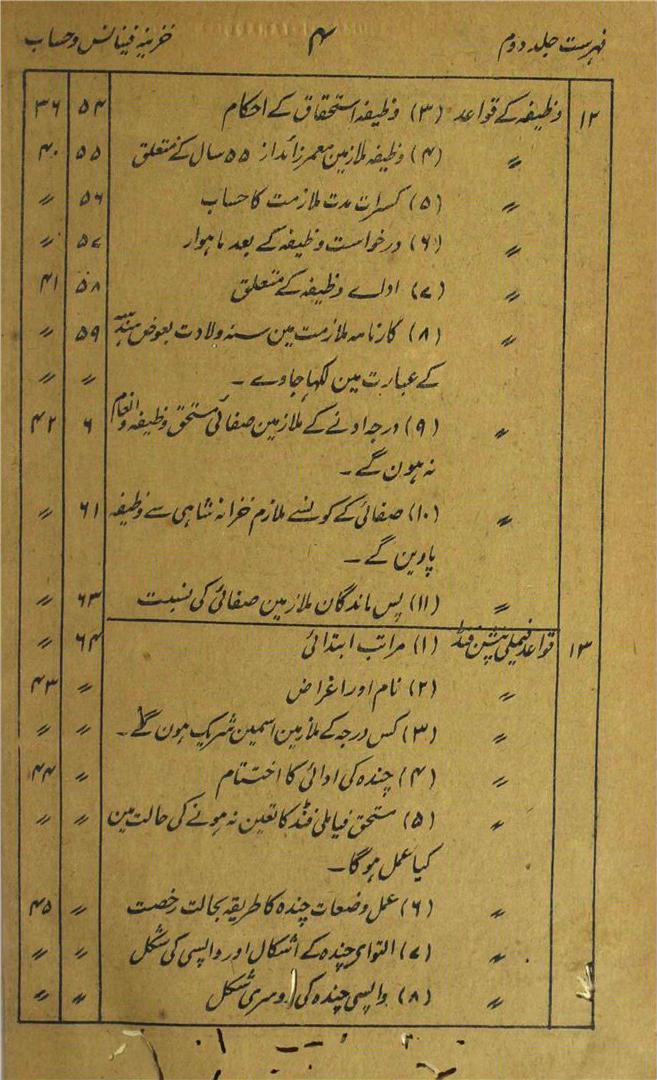 فہرست جلد دوم ۴ خزینہ فینانس وحساب
۱۲ وظیفہ کے قواعد (۳) وظیفہ استحقاق کے احکام ۵۴ ۳۶
〃 (۴) وظیفہ ملازمین معمر زائد از ۵۵ سال کے متعلق ۵۵ ۴۰
〃 (۵) کسرات مدت ملازمت کا حساب ۵۶ 〃
〃 (۶) درخواست وظیفہ کے بعد ماہوار ۵۷ 〃
〃 (۷) ادائے وظیفہ کے متعلق ۵۸ ۴۱
〃 (۸) کارنامہ ملازمت مین سنہ ولادت بعوض ہندسہ ۵۹ 〃
کے عبارت مین لکہا جاوے ۔ 〃 〃
〃 (۹) درجہ ادنے کے ملازمین صفائی مستحق وظیفہ وانعام ۶ ۴۲
نہ ہون گے ۔
〃 (۱۰) صفائی کے کونسے ملازم خزانہ شاہی سے وظیفہ ۶۱ 〃
پاوین گے ۔
〃 (۱۱) پس ماندگان ملازمین صفائی کی نسبت ۶۳ 〃
۱۳ قواعد فیملی پنشن فنڈ (۱) مراتب ابتدائی ۶۴ 〃
〃 (۲) نام اور اغراض 〃 ۴۳
〃 (۳) کس درجہ کے ملازمین اسمین شریک ہون گے ۔ 〃 〃
〃 (۴) چندہ کی ادائی کا اختتام 〃 ۴۴
〃 (۵) مستحق فیاملی فنڈ کا تعین نہ ہونے کی حالت مین 〃 〃
کیا عمل ہوگا ۔
〃 (۶) عمل وضعات چندہ کا طریقہ بحالت رخصت 〃 ۴۵
〃 (۷) التوای چندہ کے اشکال اور واپسی کی شکل 〃 〃
〃 (۸) واپسی چندہ کی دوسری شکل 〃 〃